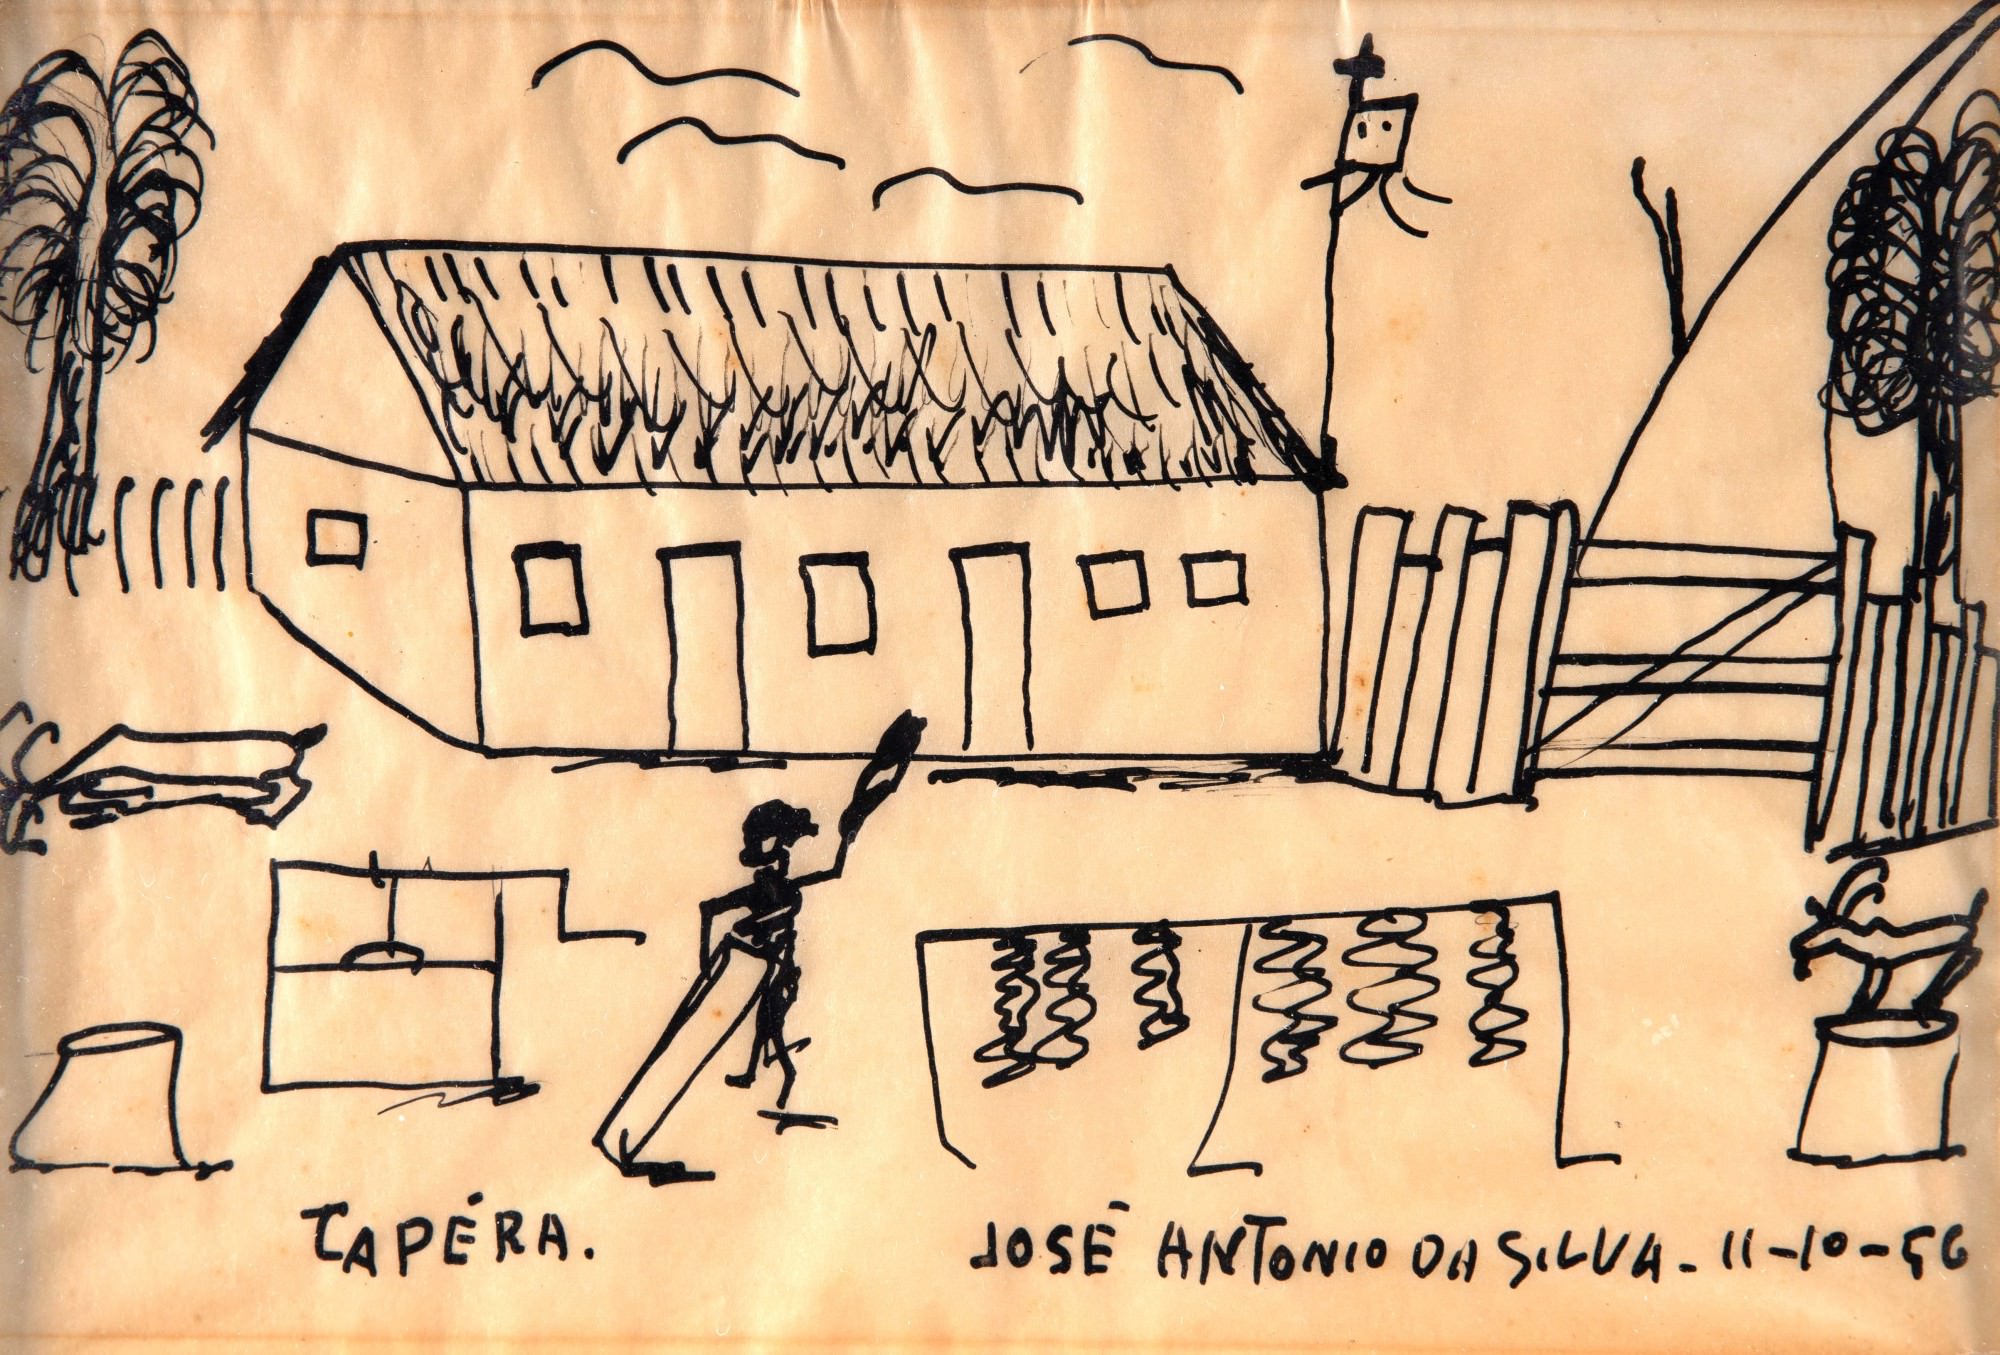 TAPÉRA.
JOSÉ ANTONIO DA SILVA - 11-10-56